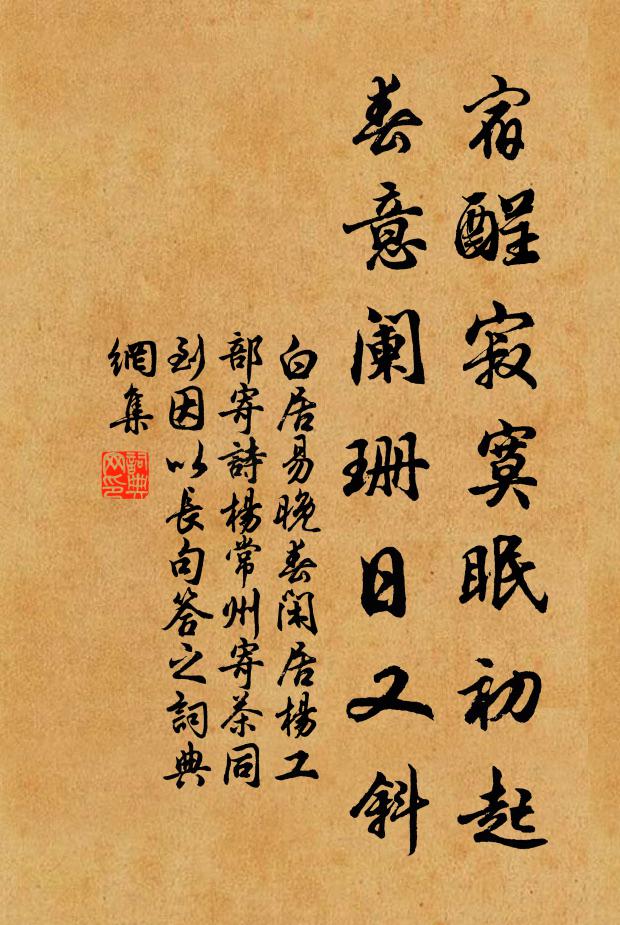 宿酲寂寞眠初起
春意阑珊日又斜
白居易晚春閑居楊工
部寄詩楊常州寄茶同
到因以長句答之詞典
網集
詞典
网印